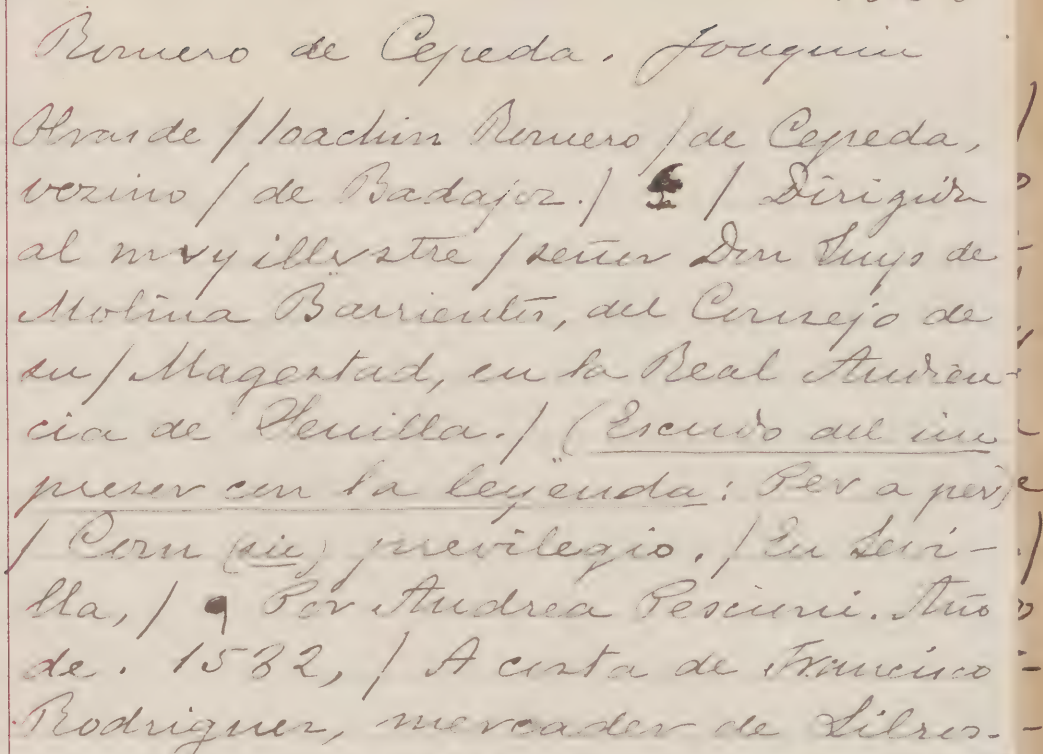 Romero de Cepeda. Joaquin
Obras de / Ioachin Romero / de Cepeda,
vezino / de Badajoz. / / Dirigidas
al mvy illvstre / señor Don Luys de
Molina Barrientos, del Consejo de
su / Magestad, en la Real Audien-
cia de Seuilla. / (Escudo del im
presor con la leyenda: Por a per)
/ Con (sic) previlegio. / En Sevi-
lla, / Por Andrea Pescioni. Año
de. 1582, / A costa de Francisco
Rodriguez, mercader de Libros.-